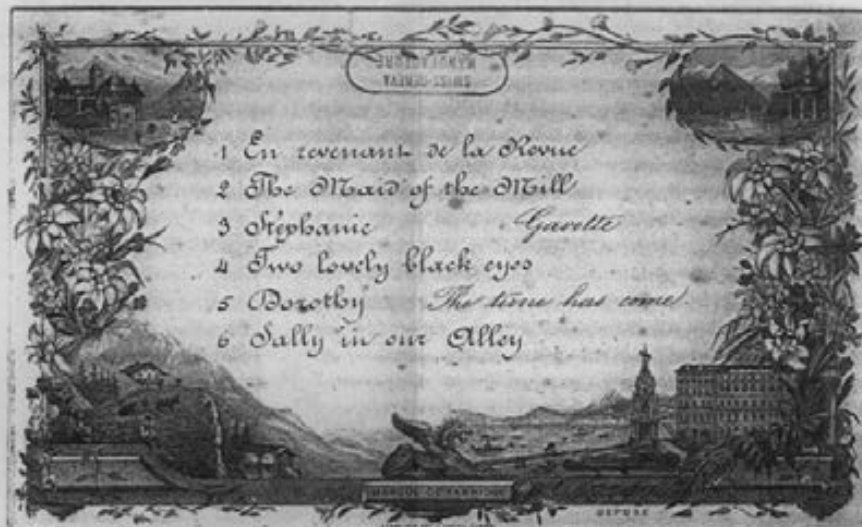 SWISS-GENEVA
MANUFACTURE
1 En revenant de la Revue
2 The Maid of the Mill
3 Stéphanie Gavotte
4 Two lovely black eyes
5 Dorothy The time has come
6 Sally in our Alley
MARQUE DE FABRIQUE
DÉPOSÉ